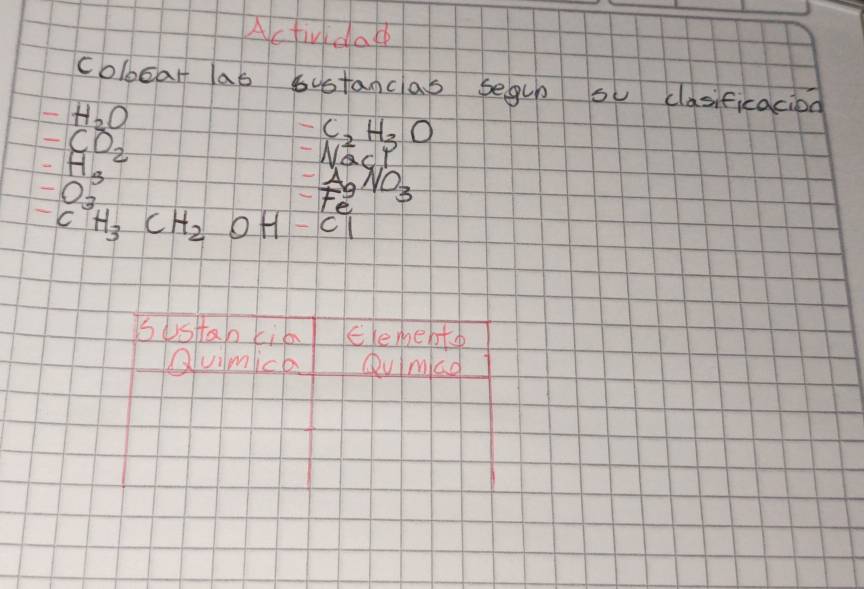 Actividad
Colocar las sustancias segun su clasificación
- H₂O
- CO₂
- H₃
- O₃
- CH₃ CH₂ OH
- C₂ H₃ O
- NaCl
- Ag NO₃
- Fe
- Cl
Sustancia
Quimica
Elemento
Quimico